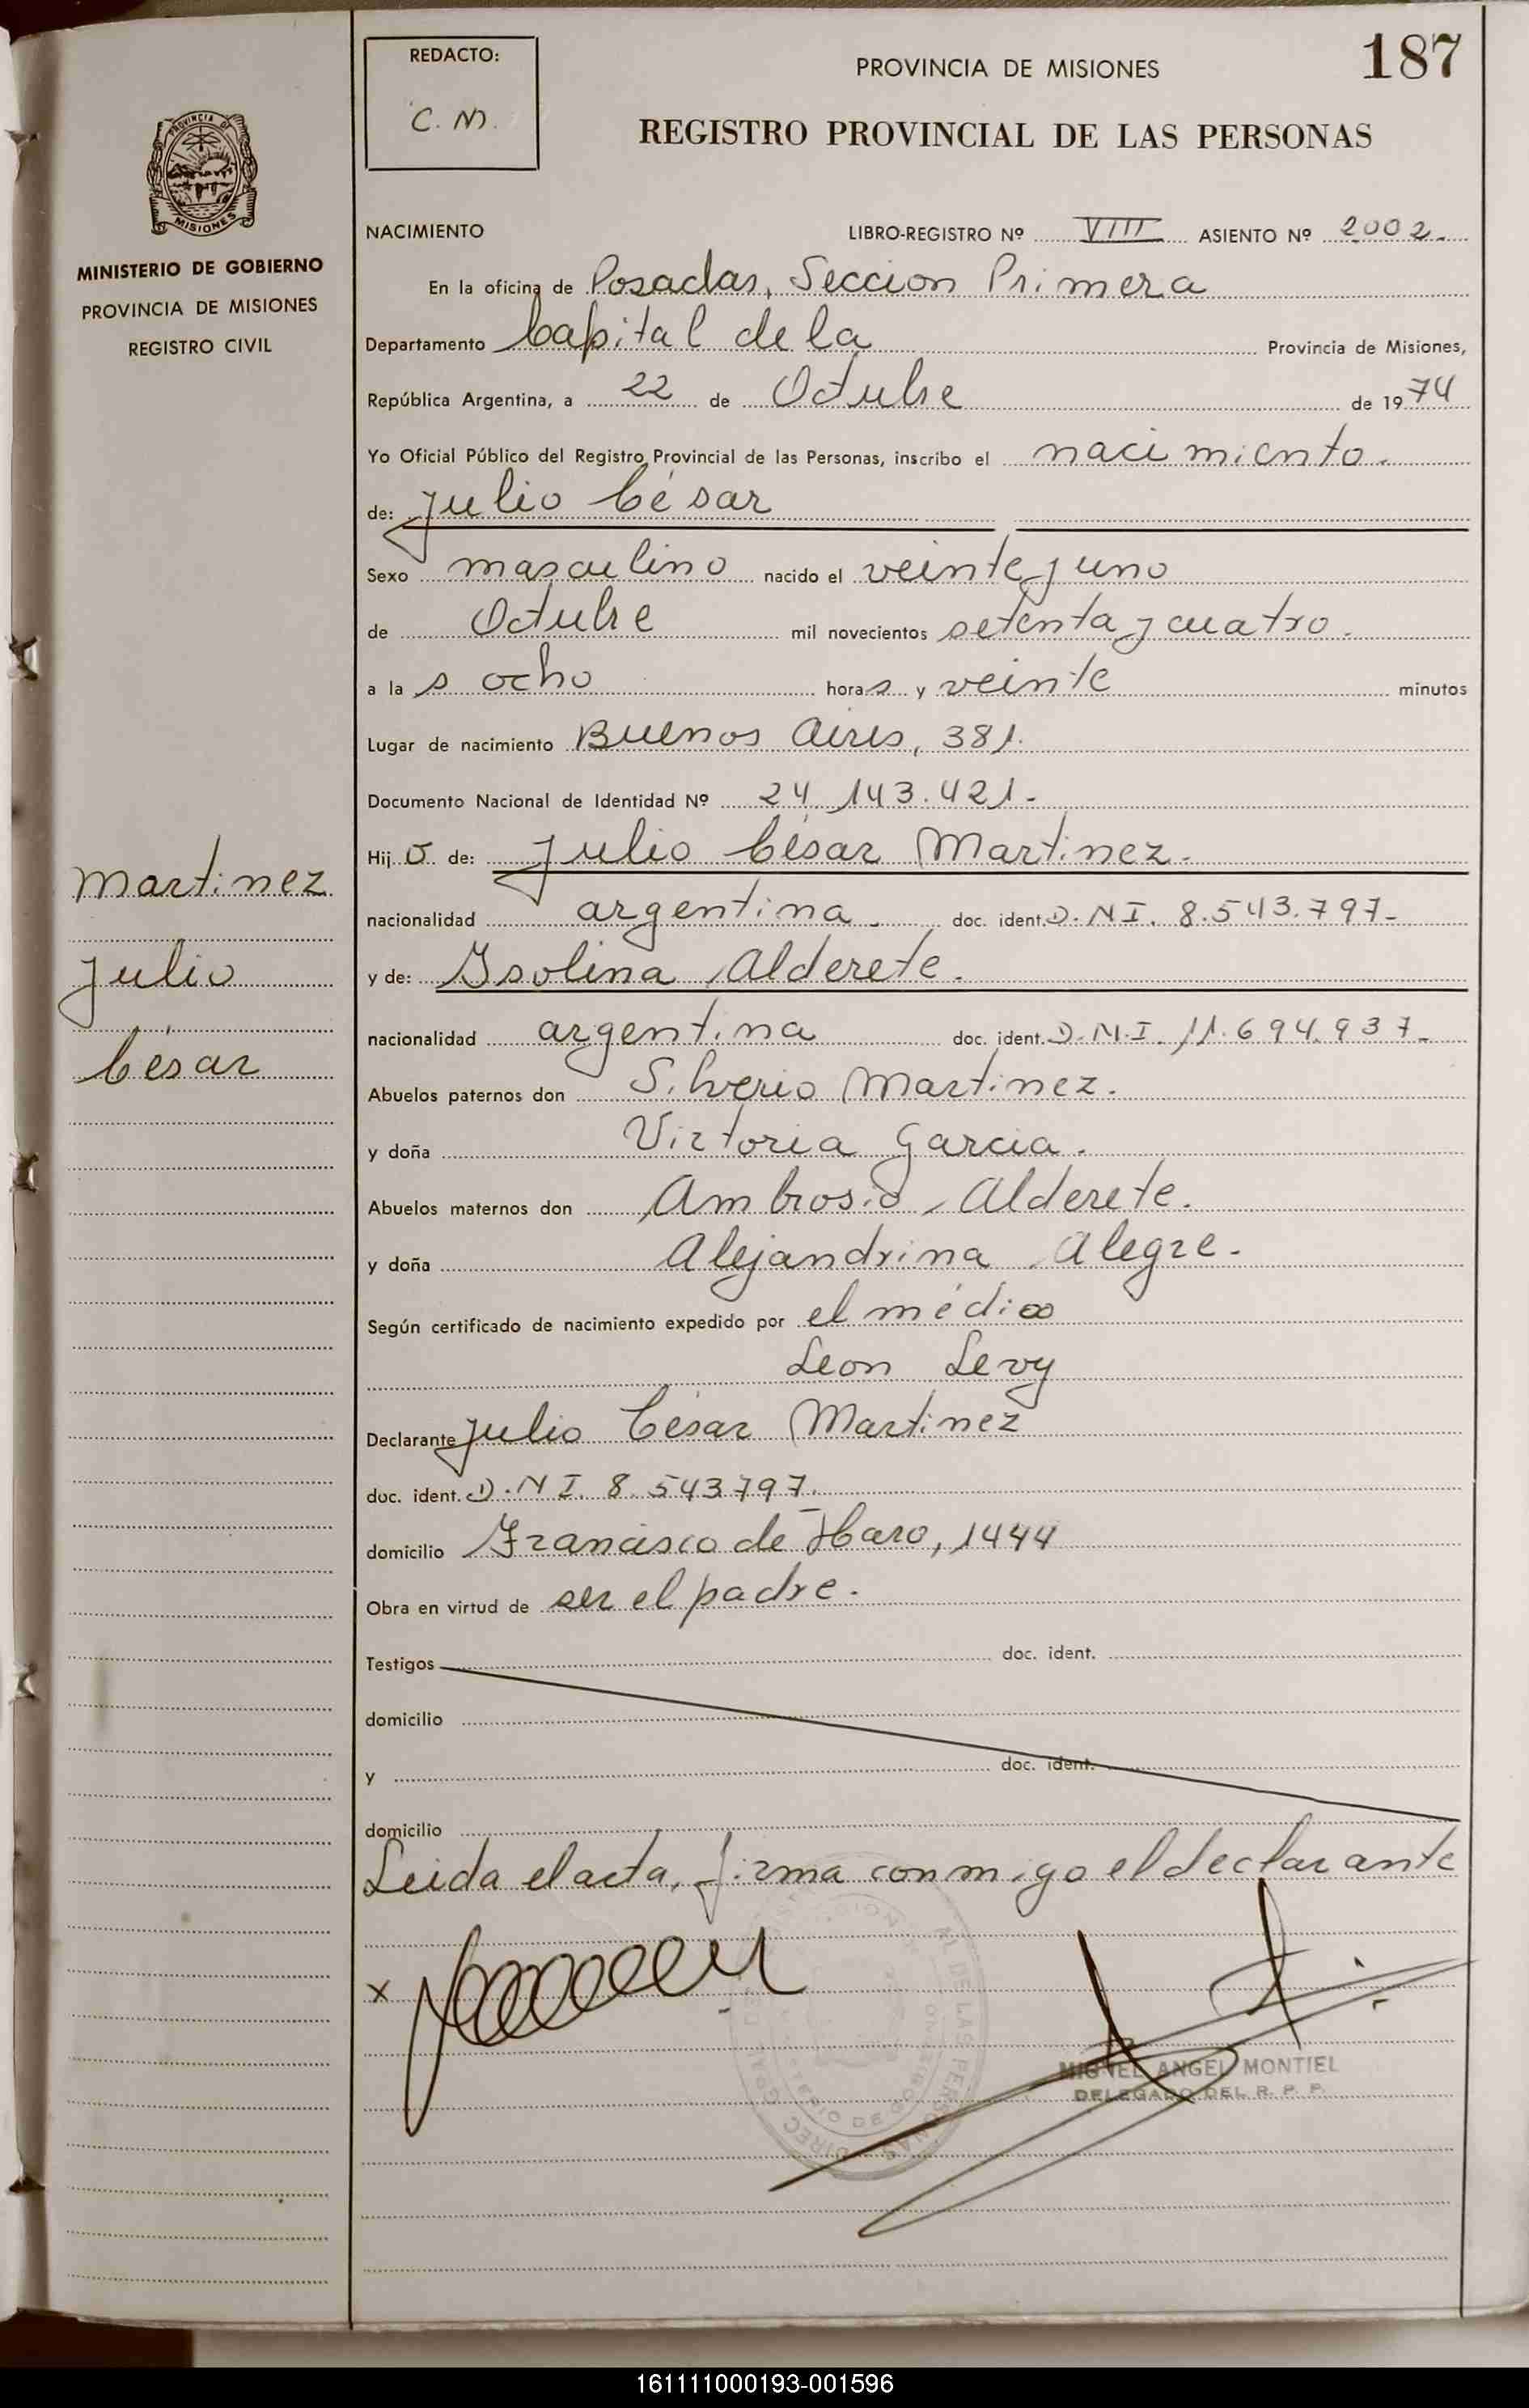 REDACTO:
C. M.
PROVINCIA DE MISIONES
187
REGISTRO PROVINCIAL DE LAS PERSONAS
PROVINCIA DE
MISIONES
MINISTERIO DE GOBIERNO
PROVINCIA DE MISIONES
REGISTRO CIVIL
Martinez
Julio
César
NACIMIENTO LIBRO-REGISTRO Nº VIII ASIENTO Nº 2002.
En la oficina de Posadas, Seccion Primera
Departamento Capital de la Provincia de Misiones,
República Argentina, a 22 de Octubre de 1974
Yo Oficial Público del Registro Provincial de las Personas, inscribo el nacimiento.
de: Julio César
Sexo masculino nacido el veinte y uno
de Octubre mil novecientos setenta y cuatro.
a las ocho horas y veinte minutos
Lugar de nacimiento Buenos Aires, 381.
Documento Nacional de Identidad Nº 24.143.421-
Hijo de: Julio César Martinez.
nacionalidad argentina. doc. ident. D.N.I. 8.543.797-
y de: Isolina Alderete.
nacionalidad argentina doc. ident. D.N.I. 11.694.937-
Abuelos paternos don Silverio Martinez.
y doña Victoria Garcia.
Abuelos maternos don Ambrosio Alderete.
y doña Alejandrina Alegre.
Según certificado de nacimiento expedido por el médico
Leon Levy
Declarante Julio César Martinez
doc. ident. D.N.I. 8.543797.
domicilio Francisco de Haro, 1444
Obra en virtud de ser el padre.
Testigos doc. ident.
domicilio
y doc. ident.
domicilio
Leida el acta, firma conmigo el declarante
x
MIGUEL ANGEL MONTIEL
DELEGADO DEL R. P. P.
161111000193-001596